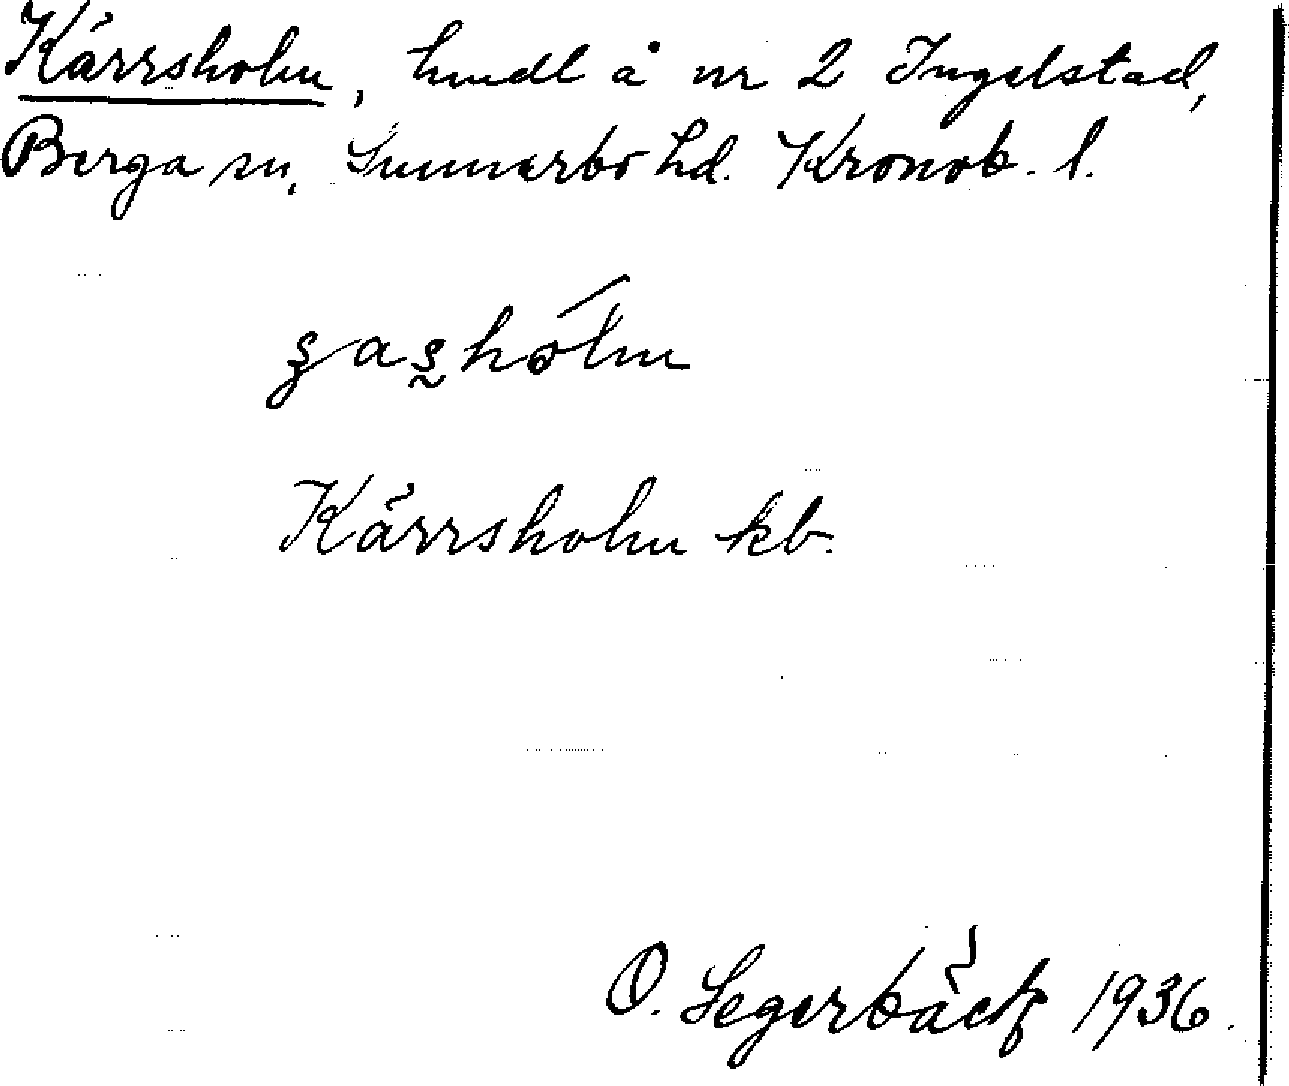 Kärrsholm, hmdl å nr 2 Ingelstad,
Berga sn, Sunnerbo hd. Kronob. l.
Kärrsholm kb.
O. Segerbäck 1936.